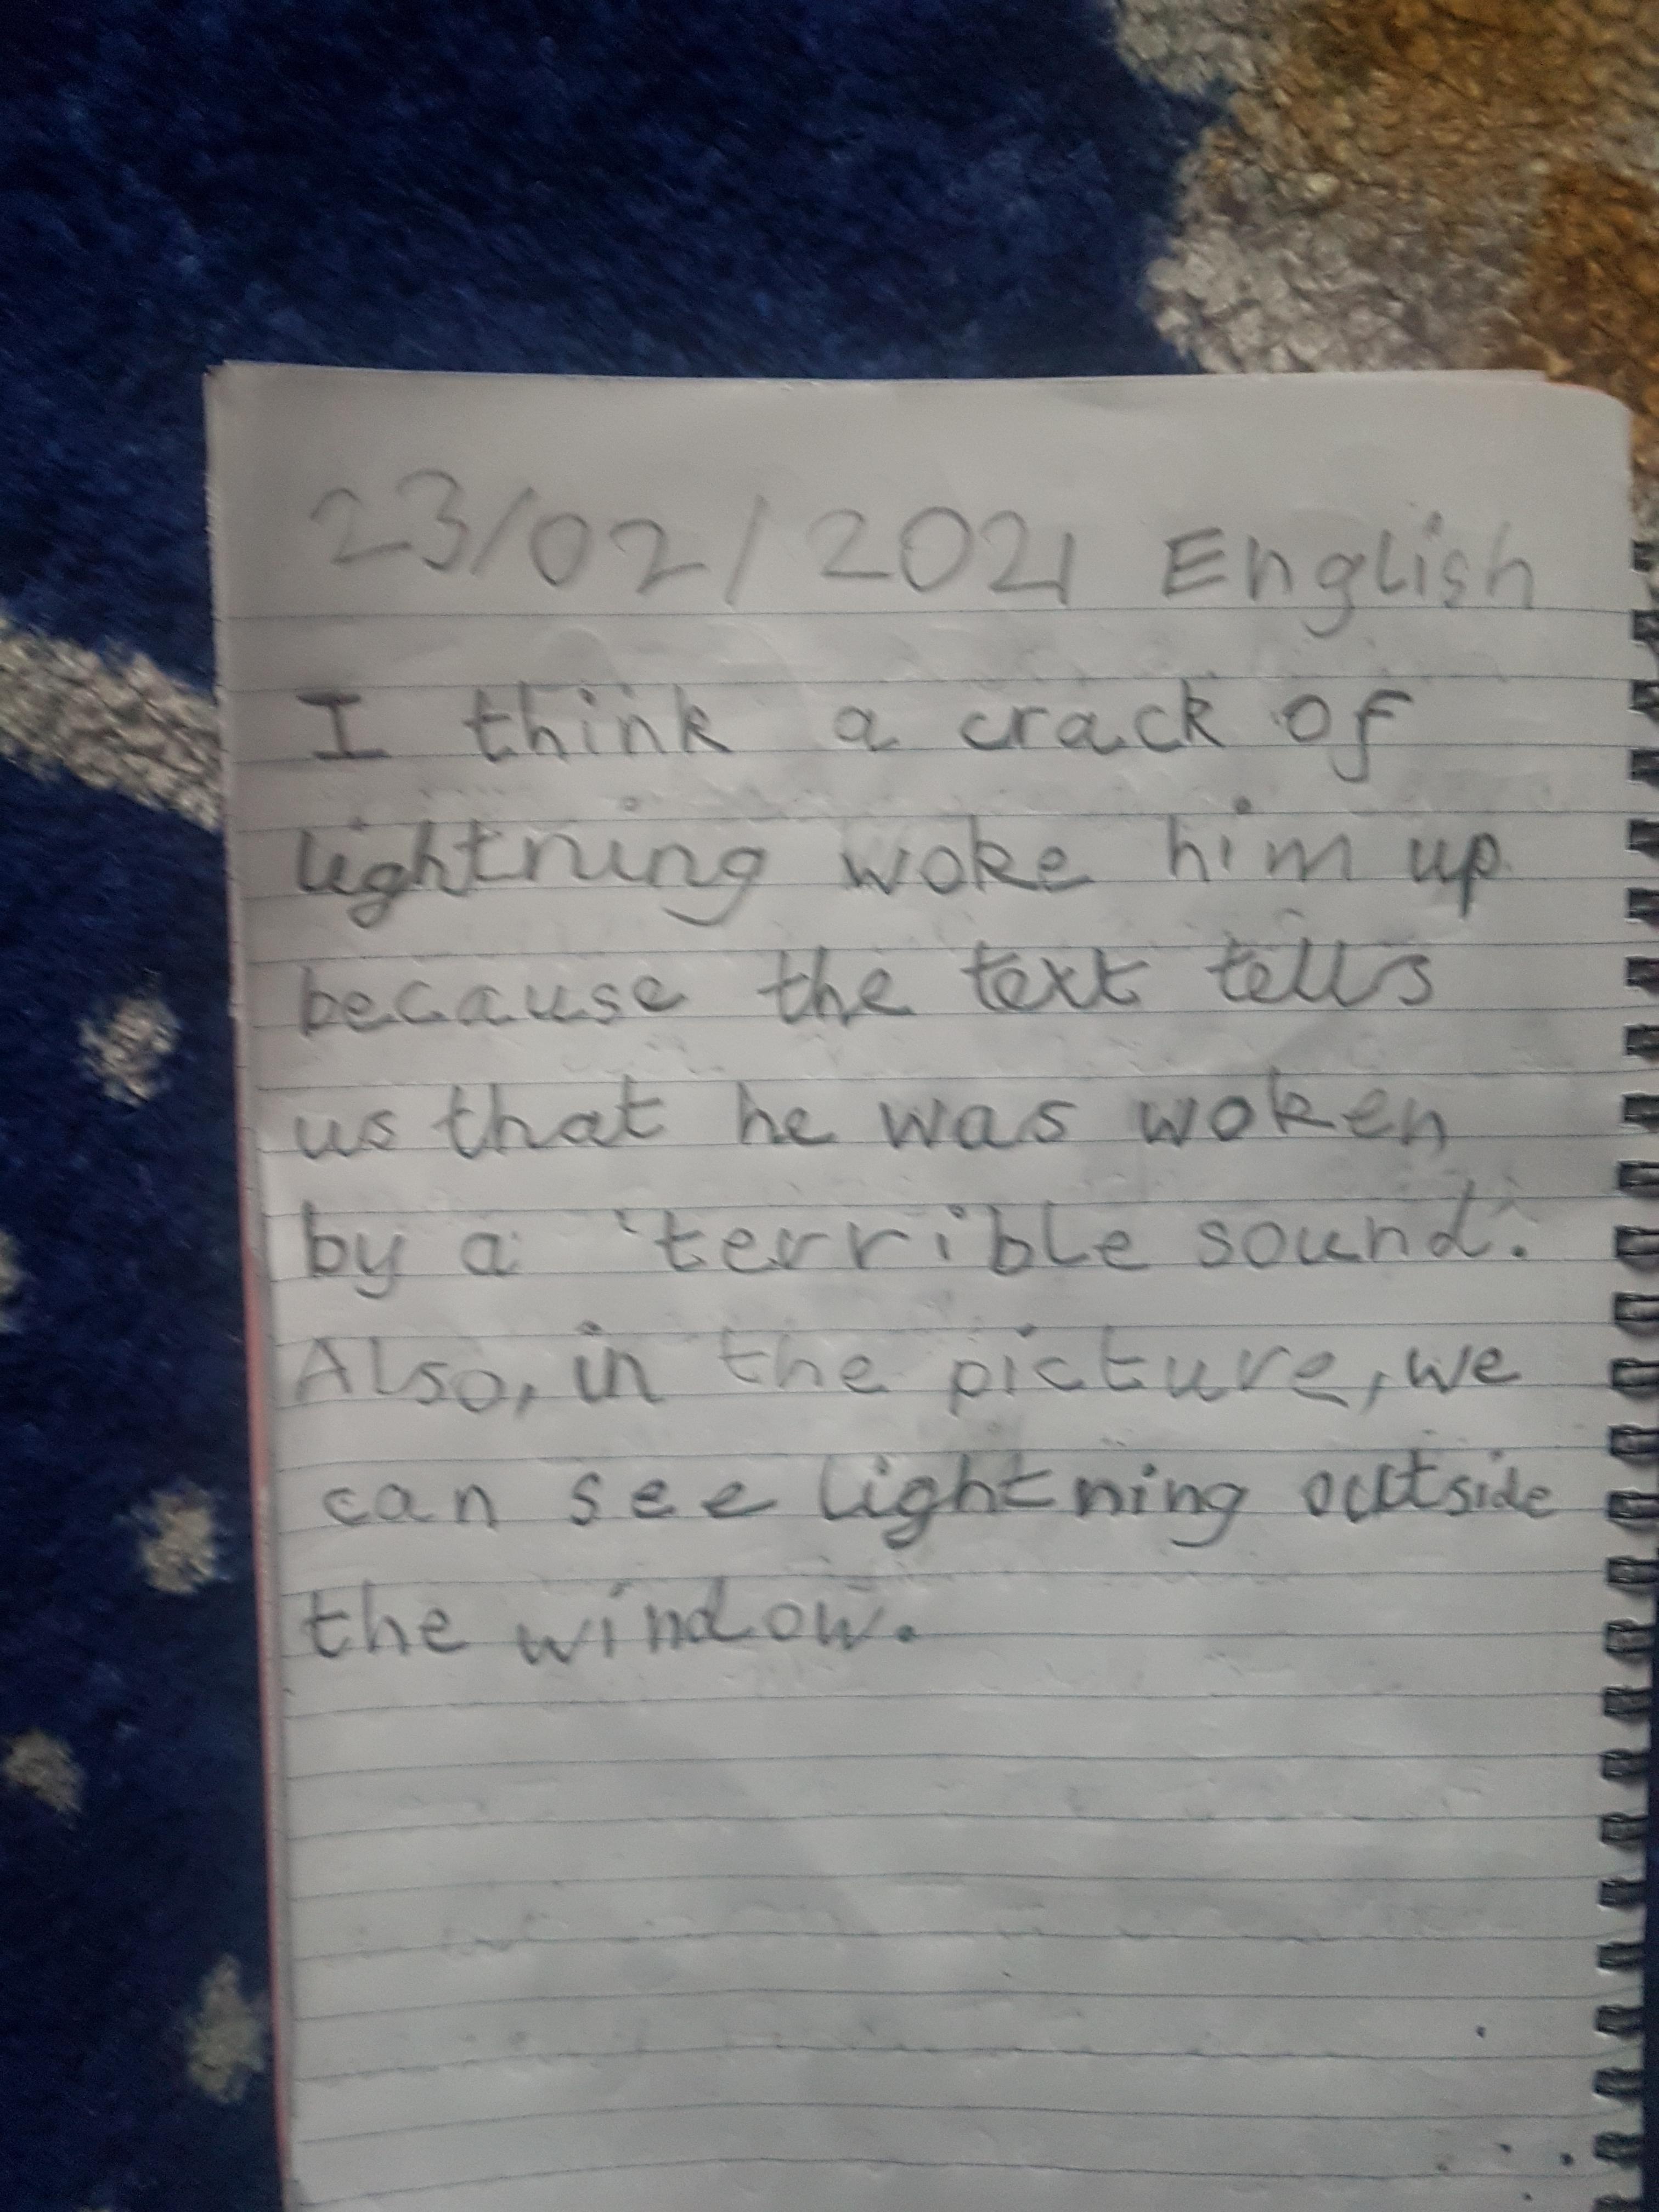 23/02/2021 English
I think a crack of
lightning woke him up
because the text tells
us that he was woken
by a 'terrible sound'.
Also, in the picture, we
can see lightning outside
the window.